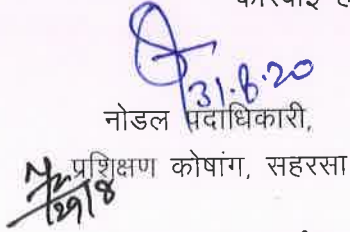 31.8.20
नोडल पदाधिकारी,
प्रशिक्षण कोषांग, सहरसा
29/8